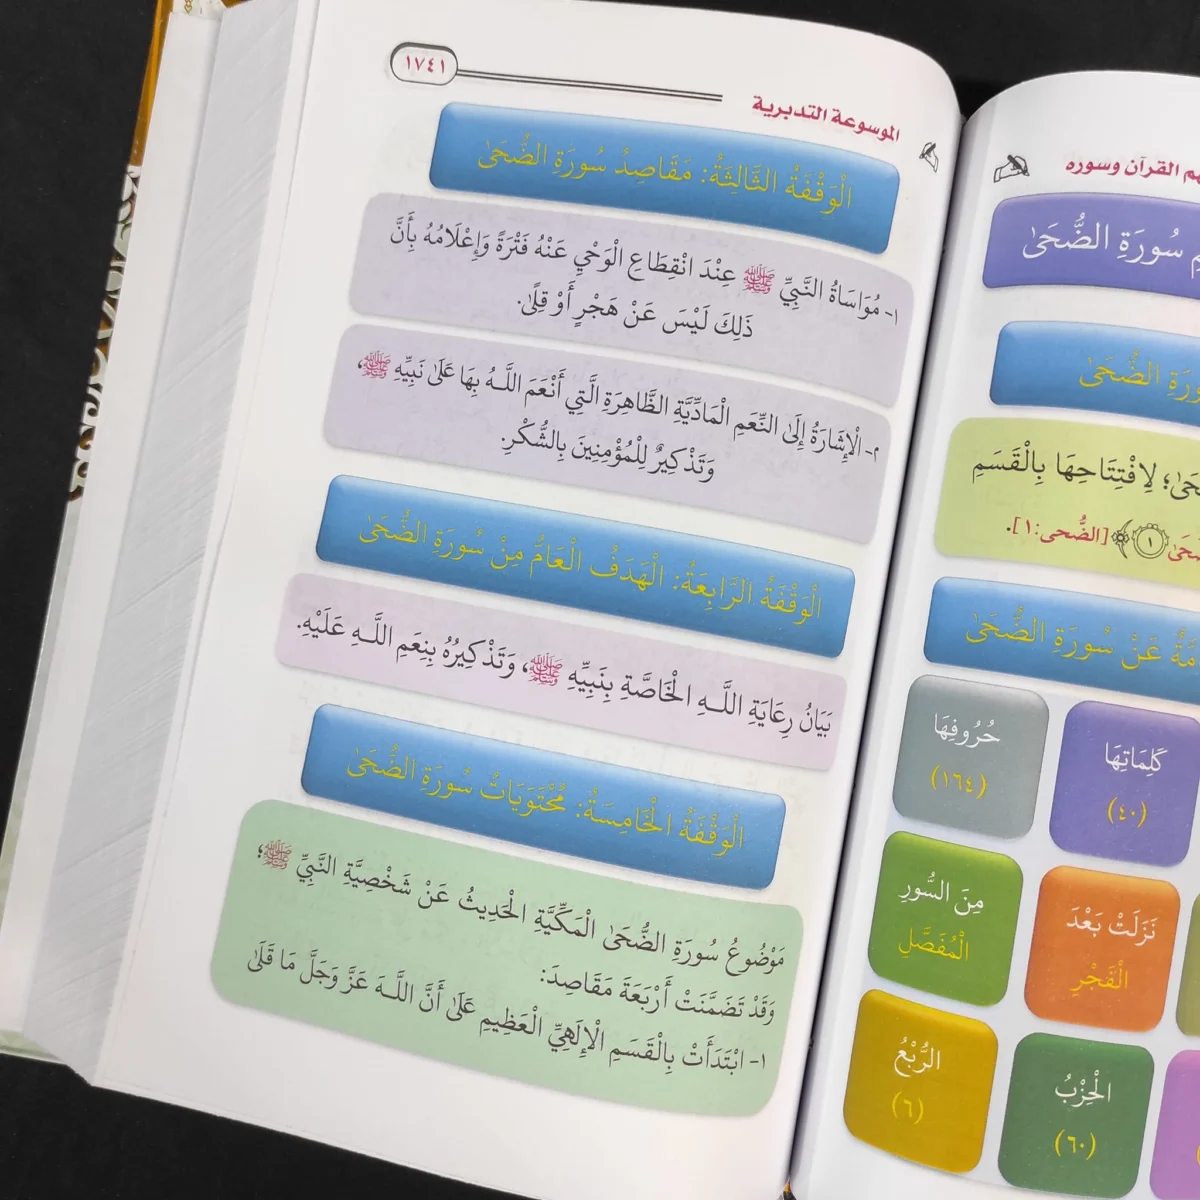 هم القرآن وسوره
سُورَةِ الضُّحَىٰ
الضُّحَىٰ
لِافْتِتَاحِهَا بِالْقَسَمِ
﴿١﴾ [الضُّحى:١].
عَنْ سُورَةِ الضُّحَىٰ
كَلِمَاتِهَا
(٤٠)
حُرُوفِهَا
(١٦٤)
نَزَلَتْ بَعْدَ
الْفَجْرِ
مِنَ السُّورِ
الْمُفَصَّلِ
الْحِزْبُ
(٦٠)
الرُّبْعُ
(٦)
الموسوعة التدبرية
١٧٤١
الْوَقْفَةُ الثَّالِثَةُ: مَقَاصِدُ سُورَةِ الضُّحَىٰ
١- مُوَاسَاةُ النَّبِيِّ ﷺ عِنْدَ انْقِطَاعِ الْوَحْيِ عَنْهُ فَتْرَةً وَإِعْلَامُهُ بِأَنَّ
ذَلِكَ لَيْسَ عَنْ هَجْرٍ أَوْ قِلًى.
٢- الْإِشَارَةُ إِلَىٰ النِّعَمِ الْمَادِّيَّةِ الظَّاهِرَةِ الَّتِي أَنْعَمَ اللَّـهُ بِهَا عَلَىٰ نَبِيِّهِ ﷺ،
وَتَذْكِيرٌ لِلْمُؤْمِنِينَ بِالشُّكْرِ.
الْوَقْفَةُ الرَّابِعَةُ: الْهَدَفُ الْعَامُّ مِنْ سُورَةِ الضُّحَىٰ
بَيَانُ رِعَايَةِ اللَّـهِ الْخَاصَّةِ بِنَبِيِّهِ ﷺ، وَتَذْكِيرُهُ بِنِعَمِ اللَّـهِ عَلَيْهِ.
الْوَقْفَةُ الْخَامِسَةُ: مُحْتَوَيَاتُ سُورَةِ الضُّحَىٰ
مَوْضُوعُ سُورَةِ الضُّحَىٰ الْمَكِّيَّةِ الْحَدِيثُ عَنْ شَخْصِيَّةِ النَّبِيِّ ﷺ؛
وَقَدْ تَضَمَّنَتْ أَرْبَعَةَ مَقَاصِدَ:
١- ابْتَدَأَتْ بِالْقَسَمِ الْإِلَهِيِّ الْعَظِيمِ عَلَىٰ أَنَّ اللَّـهَ عَزَّ وَجَلَّ مَا قَلَىٰ